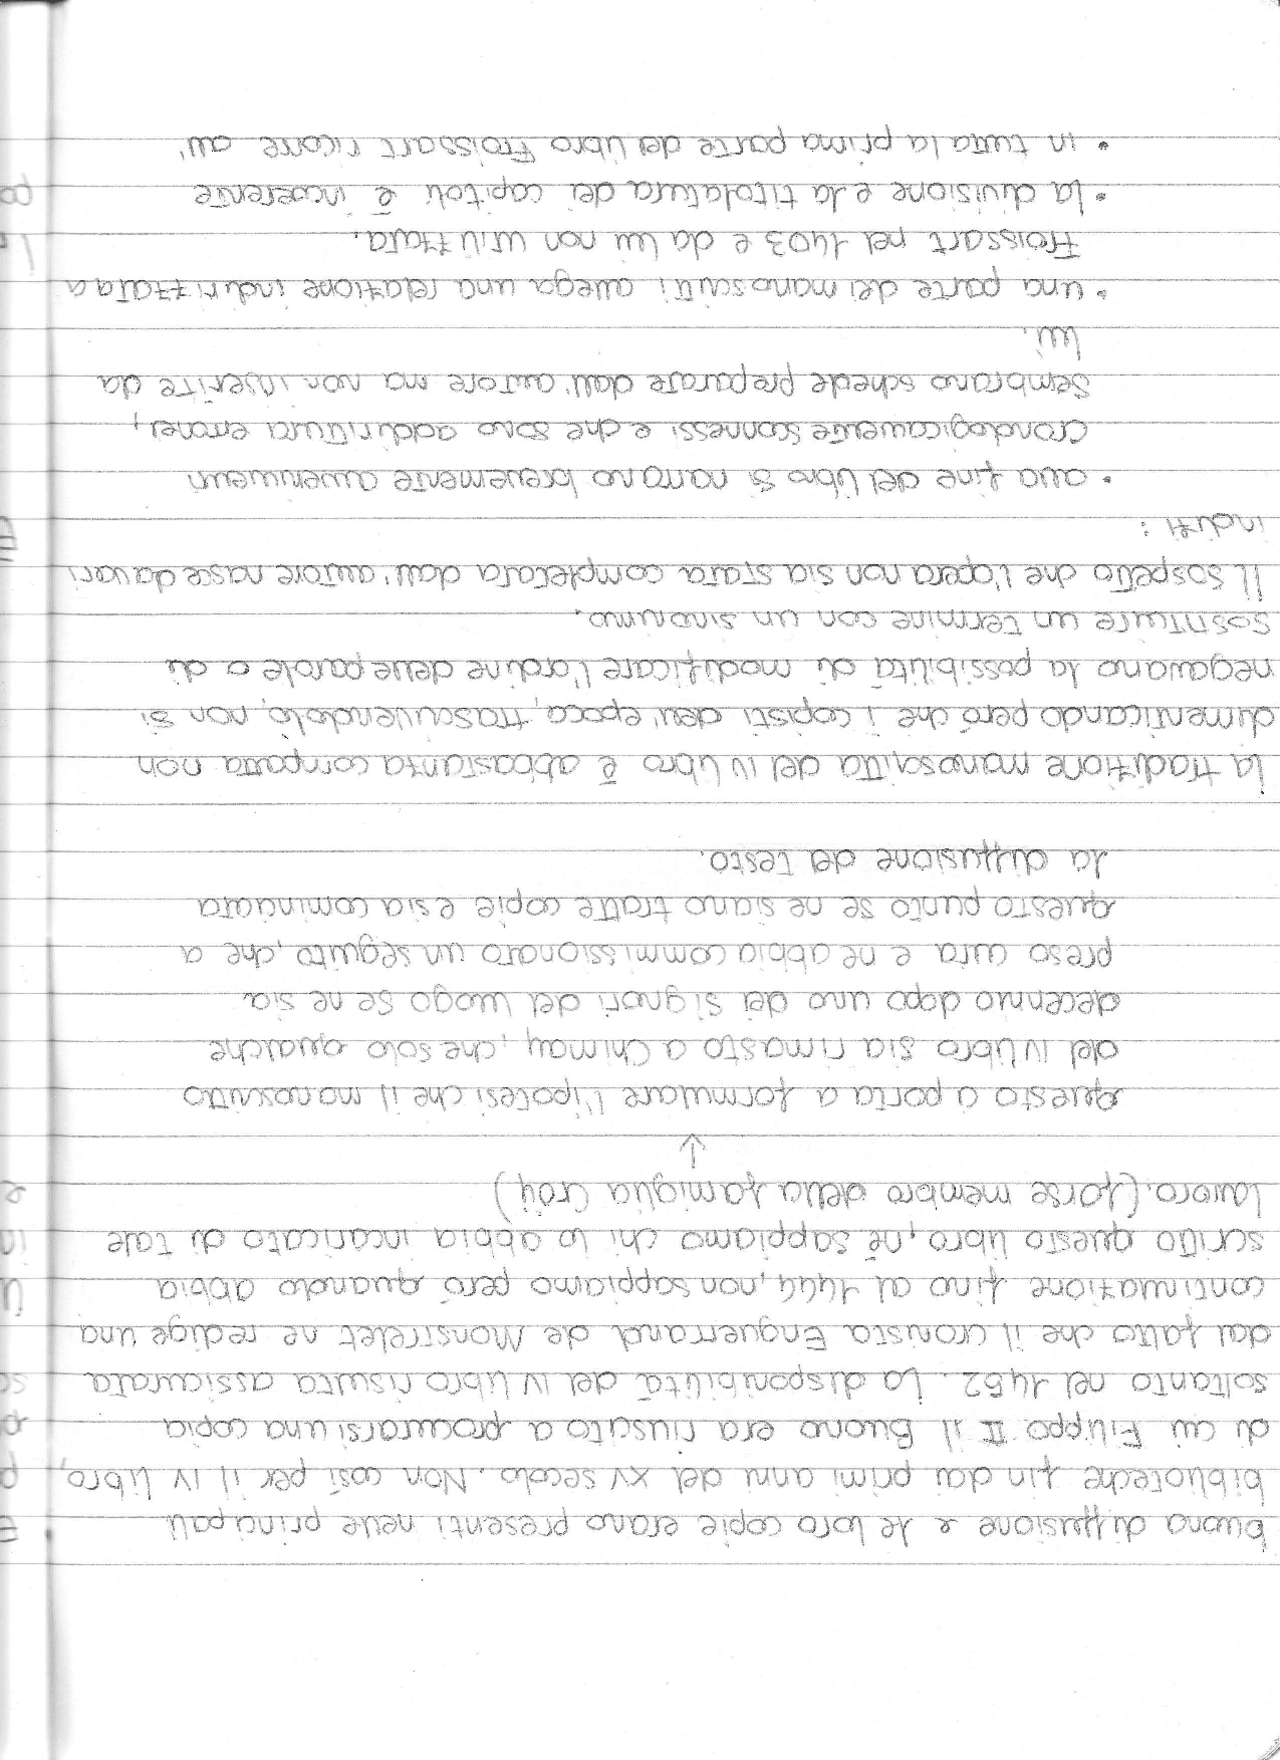 buona diffusione e le loro copie erano presenti nelle principali
biblioteche fin dai primi anni del XV secolo. Non così per il IV libro,
di cui Filippo II il Buono era riuscito a procurarsi una copia
soltanto nel 1452. La disponibilità del IV libro risulta assicurata
dal fatto che il cronista Enguerrand de Monstrelet ne redige una
continuazione fino al 1444, non sappiamo però quando abbia
scritto questo libro, né sappiamo chi lo abbia incaricato di tale
lavoro. (forse membro della famiglia Croÿ)
↓
questo ci porta a formulare l'ipotesi che il manoscritto
del IV libro sia rimasto a Chimay, che solo qualche
decennio dopo uno dei signori del luogo se ne sia
preso cura e ne abbia commissionato un seguito, che a
questo punto se ne siano tratte copie e sia cominciata
la diffusione del testo.
la tradizione manoscritta del IV libro è abbastanza compatta non
dimenticando però che i copisti dell'epoca, trascrivendolo, non si
negavano la possibilità di modificare l'ordine delle parole o di
sostituire un termine con un sinonimo.
Il sospetto che l'opera non sia stata completata dall'autore nasce da vari
indizi:
• alla fine del libro si narrano brevemente avvenimenti
cronologicamente sconnessi e che sono addirittura erronei,
sembrano schede preparate dall'autore ma non inserite da
lui.
• una parte dei manoscritti allega una relazione indirizzata a
Froissart nel 1403 e da lui non utilizzata.
• la divisione e la titolatura dei capitoli è incoerente
• in tutta la prima parte del libro Froissart ricorre all'